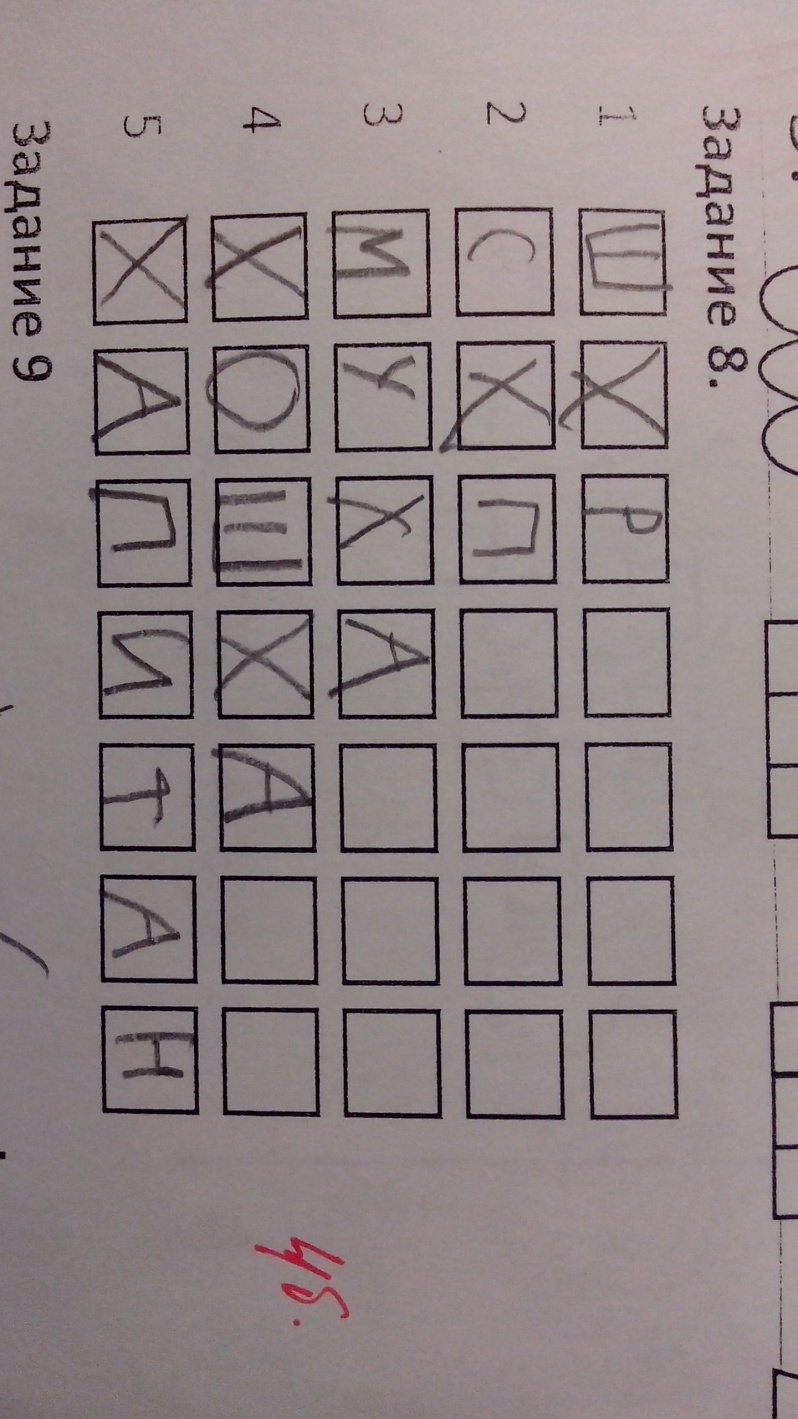 Задание 8.
1 Ш Х Р
2 С Х П
3 М У Х А
4 Х О Ш Х А
5 Х А П И Т А Н
4б.
Задание 9